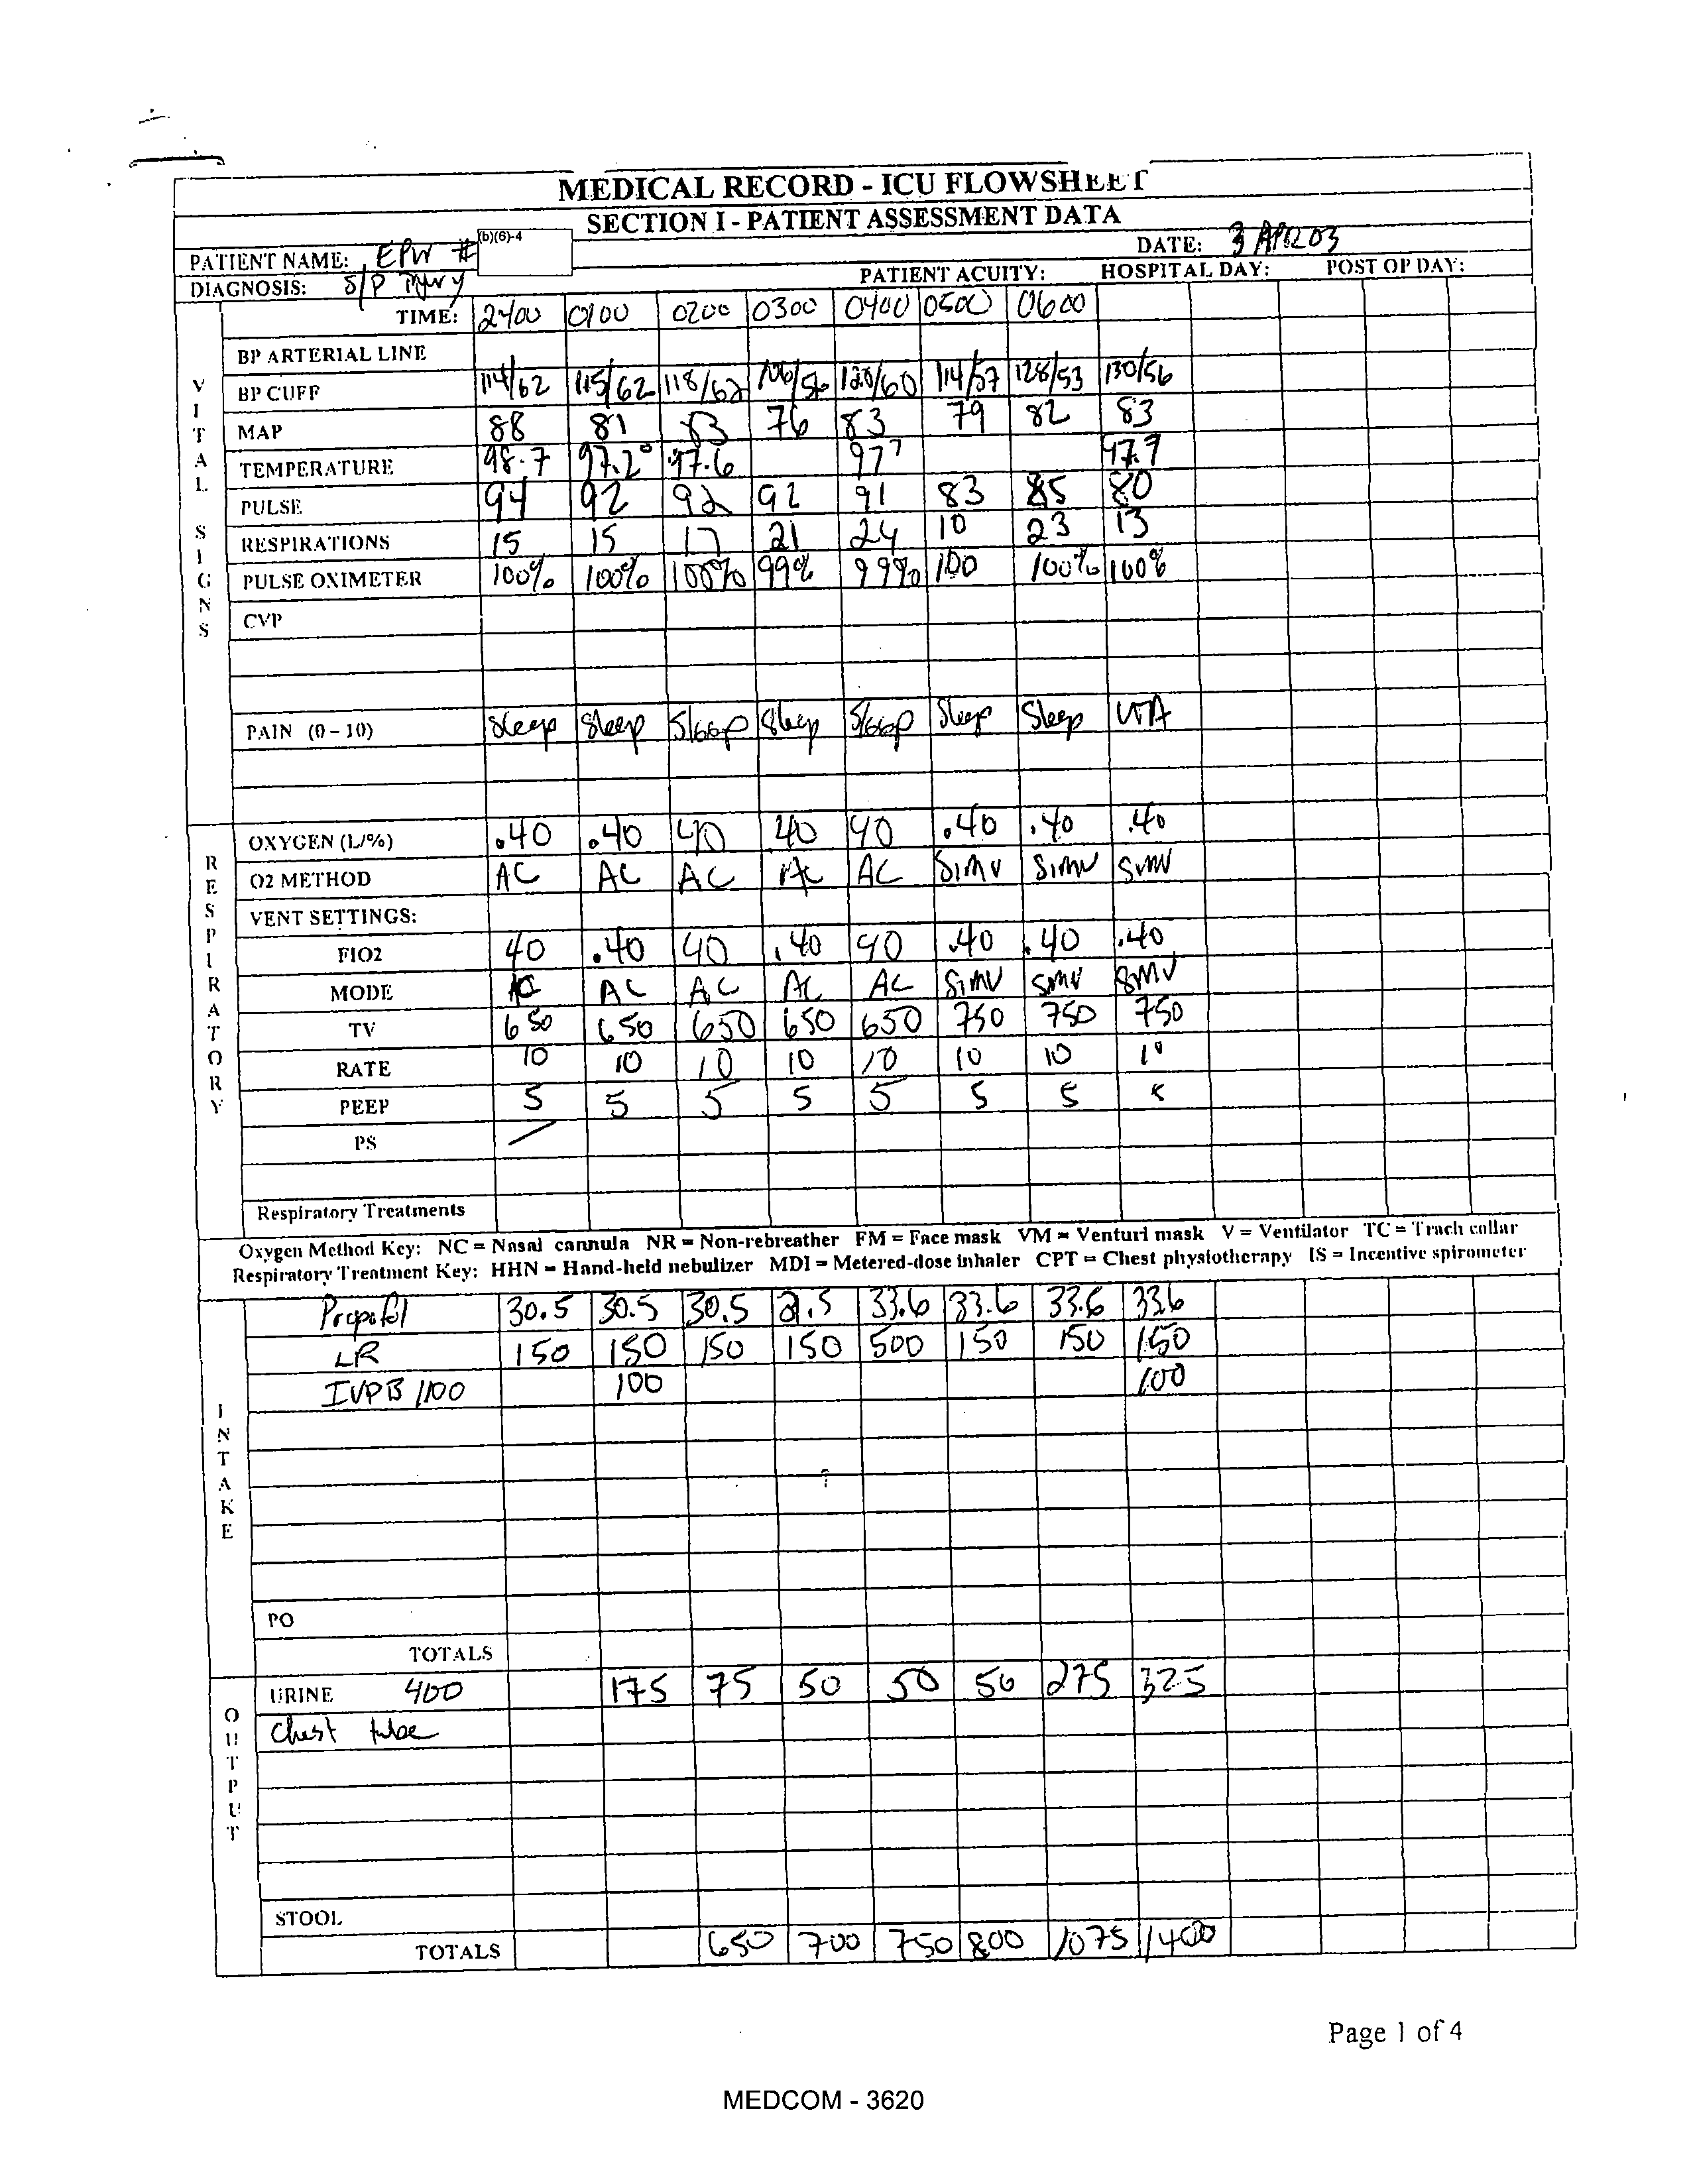 MEDICAL RECORD - ICU FLOWSHEET
SECTION I - PATIENT ASSESSMENT DATA
PATIENT NAME: EPW # (b)(6)-4 DATE: 3 APR 03
DIAGNOSIS: S/P injury PATIENT ACUITY: HOSPITAL DAY: POST OP DAY:
VITAL SIGNS
TIME: 2400 0100 0200 0300 0400 0500 0600
BP ARTERIAL LINE
BP CUFF 114/62 115/62 118/62 106/56 120/60 114/57 128/53 130/56
MAP 88 81 83 76 83 79 82 83
TEMPERATURE 98.7 97.2° 97.6 97⁷ 97.7
PULSE 94 92 92 92 91 83 85 80
RESPIRATIONS 15 15 17 21 24 10 23 13
PULSE OXIMETER 100% 100% 100% 99% 99% 100 100% 100%
CVP
PAIN (0 - 10) Sleep Sleep Sleep Sleep Sleep Sleep Sleep UTA
RESPIRATORY
OXYGEN (L/%) .40 .40 40 40 40 .40 .40 .40
O2 METHOD AC AC AC AC AC SIMV SIMV SIMV
VENT SETTINGS:
FIO2 40 .40 40 .40 40 .40 .40 .40
MODE AC AC AC AC AC SIMV SIMV SIMV
TV 650 650 650 650 650 750 750 750
RATE 10 10 10 10 10 10 10 10
PEEP 5 5 5 5 5 5 5 5
PS /
Respiratory Treatments
Oxygen Method Key: NC = Nasal cannula NR = Non-rebreather FM = Face mask VM = Venturi mask V = Ventilator TC = Trach collar
Respiratory Treatment Key: HHN = Hand-held nebulizer MDI = Metered-dose inhaler CPT = Chest physiotherapy IS = Incentive spirometer
INTAKE
Propofol 30.5 30.5 30.5 33.6 33.6 33.6 33.6
LR 150 150 150 150 500 150 150 150
IVPB /100 100 100
PO
TOTALS
OUTPUT
URINE 400 175 75 50 50 50 275 325
Chest tube
STOOL
TOTALS 650 700 750 800 1075 1400
Page 1 of 4
MEDCOM - 3620